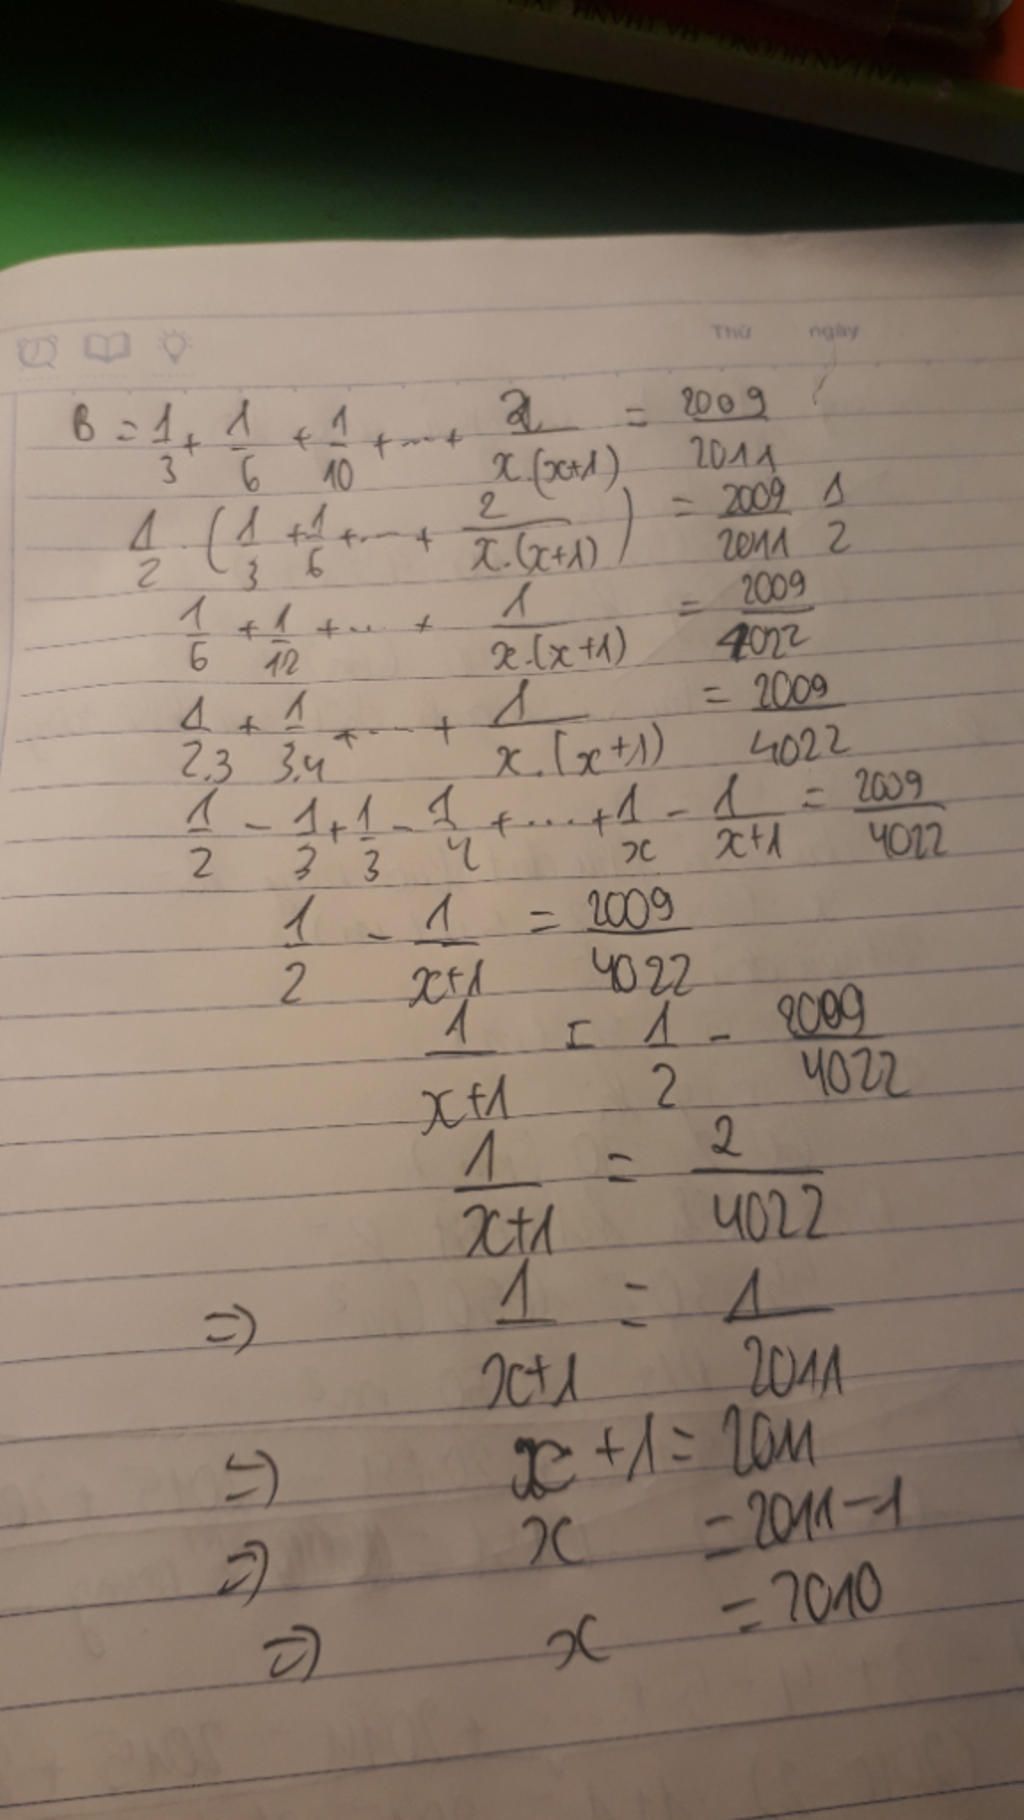 Thứ ngày
B = 1/3 + 1/6 + 1/10 + ... + 2/x.(x+1) = 2009/2011
1/2 . (1/3 + 1/6 + ... + 2/x.(x+1)) = 2009/2011 1/2
1/6 + 1/12 + ... + 1/x.(x+1) = 2009/4022
1/2.3 + 1/3.4 + ... + 1/x.(x+1) = 2009/4022
1/2 - 1/3 + 1/3 - 1/4 + ... + 1/x - 1/x+1 = 2009/4022
1/2 - 1/x+1 = 2009/4022
1/x+1 = 1/2 - 2009/4022
1/x+1 = 2/4022
=> 1/x+1 = 1/2011
=> x + 1 = 2011
=> x = 2011 - 1
=> x = 2010